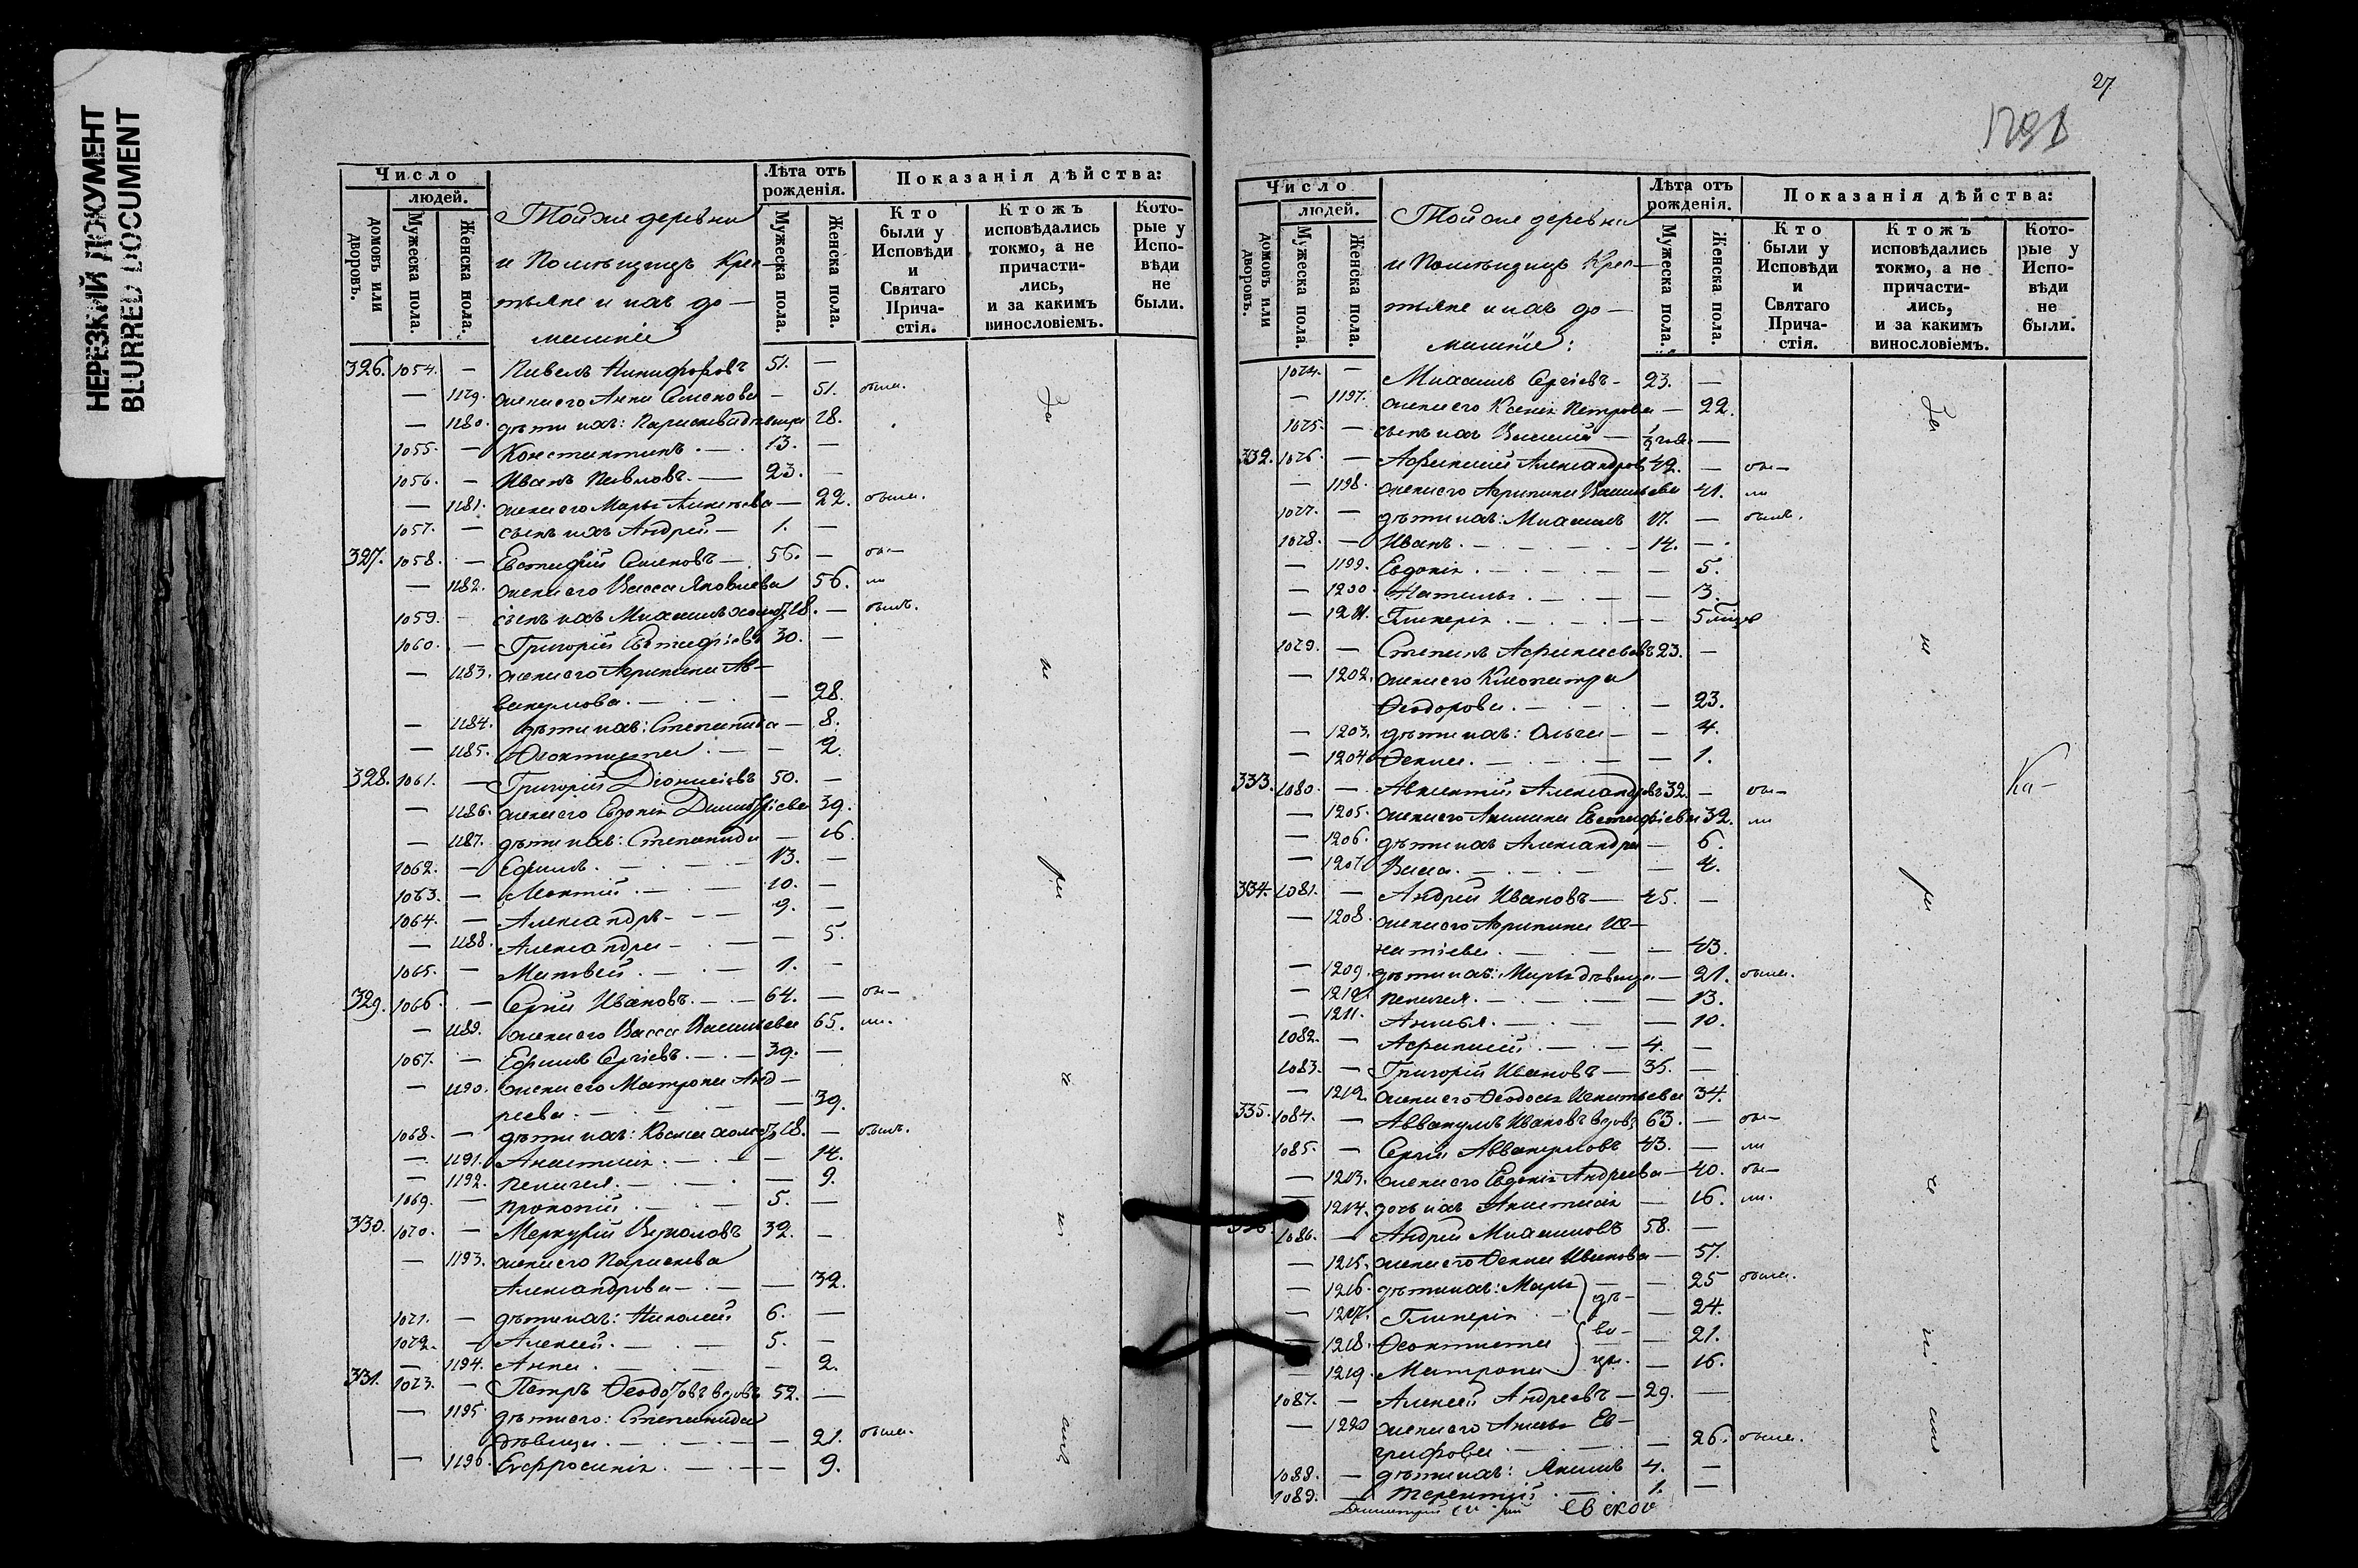 НЕРЕЗКИЙ ДОКУМЕНТ
BLURRED DOCUMENT
Число
людей.
домовъ или дворовъ.
Мужеска пола.
Женска пола.
Тойже деревни
и Помѣщицъ Крес-
тьяне и ихъ до-
машніе
Лѣта отъ рожденія.
Мужеска пола.
Женска пола.
Показанія дѣйства:
Кто были у Исповѣди и Святаго Прича-стія.
Ктожъ исповѣдались токмо, а не причасти-лись, и за какимъ винословіемъ.
Кото-рые у Испо-вѣди не были.
326. 1054. — Павелъ Никифоровъ 51. —
— 1179. жена его Анна Семенова — 51. была.
— 1180. дѣти ихъ: Параскева дѣвица 18.
1055. — Константинъ. — 13. —
1056. — Иванъ Павловъ. — 23. —
— 1181. жена его Марья — 22. была.
1057. — сынъ ихъ Андрей — 1. —
327. 1058. — Евстафій Семеновъ — 56. — бы-
— 1182. жена его Васса Яковлева 56. ли
1059. — сынъ ихъ Михаилъ холостъ 18. — былъ.
1060. — Григорій Евстафіевъ 30. —
— 1183. жена его Агрипина Ав-
вакумова. — — 28.
— 1184. дѣти ихъ: Степанида — 8.
— 1185. Ѳеоктиста. — — 2.
328. 1061. — Григорій Діонисіевъ 50. —
— 1186. жена его Евдокія Димитріева 39.
— 1187. дѣти ихъ: Степанида — 16.
1062. — Ефимъ. — 13. —
1063. — Леонтій. — 10. —
1064. — Александръ — 9. —
— 1188. Александра — — 5.
1065. — Матвей. — 1. —
329. 1066. — Сергій Ивановъ. — 64. — бы-
— 1189. жена его Васса Васильева 65. ли.
1067. — Ефимъ Сергіевъ. — 39. —
— 1190. жена его Матрона Анд-
реева. — — 39.
1068. — дѣти ихъ: Козма холостъ 18. — былъ.
— 1191. Анастасія. — — 14.
— 1192. Пелагея. — — 9.
1069. — Прокопій. — 5. —
330. 1070. — Меркурій Вуколовъ 32. —
— 1193. жена его Параскева
Александрова — — 32.
1071. — дѣти ихъ: Николай 6. —
1072. — Алексей. — 5. —
— 1194. Анна. — — 2.
331. 1073. — Петръ Ѳеодоровъ вдовъ 52. —
— 1195. дѣти его: Степанида
дѣвица. — — 21. была.
— 1196. Евфросинія. — — 9.
За
не
ра
че
ні
емъ
27
Число
людей.
домовъ или дворовъ.
Мужеска пола.
Женска пола.
Тойже деревни
и Помѣщицъ Крес-
тьяне и ихъ до-
машніе:
Лѣта отъ рожденія.
Мужеска пола.
Женска пола.
Показанія дѣйства:
Кто были у Исповѣди и Святаго Прича-стія.
Ктожъ исповѣдались токмо, а не причасти-лись, и за какимъ винословіемъ.
Кото-рые у Испо-вѣди не были.
1074. — Михаилъ Сергіевъ — 23. —
— 1197. жена его Ксенія Петрова — 22.
1075. — сынъ ихъ Василій — ½ года —
332. 1076. — Афанасій Александровъ 42. — бы-
— 1198. жена его Агрипина Васильева 41. ли
1077. — дѣти ихъ: Михаилъ 17. — былъ.
1078. — Иванъ. — 14. —
— 1199. Евдокія. — — 5.
— 1200. Наталья. — — 3.
— 1201. Гликерія. — — 5 мѣсяц
1079. — Степанъ Афанасьевъ 23. —
— 1202. жена его Клеопатра
Ѳеодорова. — — 23.
— 1203. дѣти ихъ: Ольга — — 4.
— 1204. Ѳекла. — — 1.
333. 1080. — Авксентій Александровъ 32. — бы-
— 1205. жена его Акилина Евстафіева 32. ли
— 1206. дѣти ихъ Александра — 6.
— 1207. Васса. — — 4.
334. 1081. — Андрей Ивановъ — 45. —
— 1208. жена его Агрипина Иг-
натіева. — — 43.
— 1209. дѣти ихъ: Марья дѣвица — 21. была.
— 1210. Пелагея. — — 13.
— 1211. Анисья. — — 10.
1082. — Афанасій. — 4. —
1083. — Григорій Ивановъ — 35. —
— 1212. жена его Ѳеодосія Игнатьева 34.
335. 1084. — Аввакумъ Ивановъ вдовъ 63. — бы-
1085. — Сергій Аввакумовъ 43. — ли
— 1213. жена его Евдокія Андреева — 40. бы-
— 1214. дочь ихъ Анастасія — 16. ли.
336. 1086. — Андрей Михаиловъ 58. —
— 1215. жена его Ѳекла Иванова — 57.
— 1216. дѣти ихъ: Марья дѣ- — 25 были.
— 1217. Гликерія — 24.
— 1218. Ѳеоктиста ви- — 21.
— 1219. Матрона цы. — 16.
1087. — Алексей Андреевъ — 29. —
— 1220 жена его Ев-
графова — — 26. была.
1088. — дѣти ихъ: Акимъ 4. —
1089. — Терентій. — 1. —
За
не
ра
че
ні
емъ
Ка-